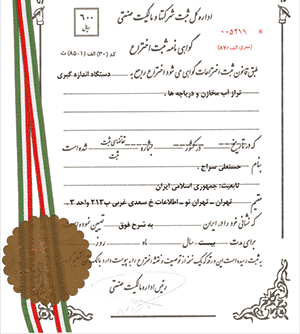 اداره کل ثبت شرکتها و مالکیت صنعتی
۶۰۰
ریال
۰۰۵۲۱۱ *
(سری الف/۸۷)
گواهی نامه ثبت اختراع
کد (۳۰) الف (۱-۸۵) ت
طبق قانون ثبت اختراعات گواهی می شود اختراع راجع به دستگاه اندازه گیری
تراز آب مخازن و دریاچه ها .
که در تاریخ در کشور بشماره ثبت تقاضای ثبت شده است
بنام
حسنعلی سراج .
تابعیت: جمهوری اسلامی ایران
مقیم تهران - تهران نو - اطلاعات خ سعدی غربی پ ۲۱۳ واحد ۲ .
که نشانی خود را در ایران به شرح فوق تعیین نموده
برای مدت بیست سال ماه روز
به ثبت رسیده است
رئیس اداره مالکیت صنعتی